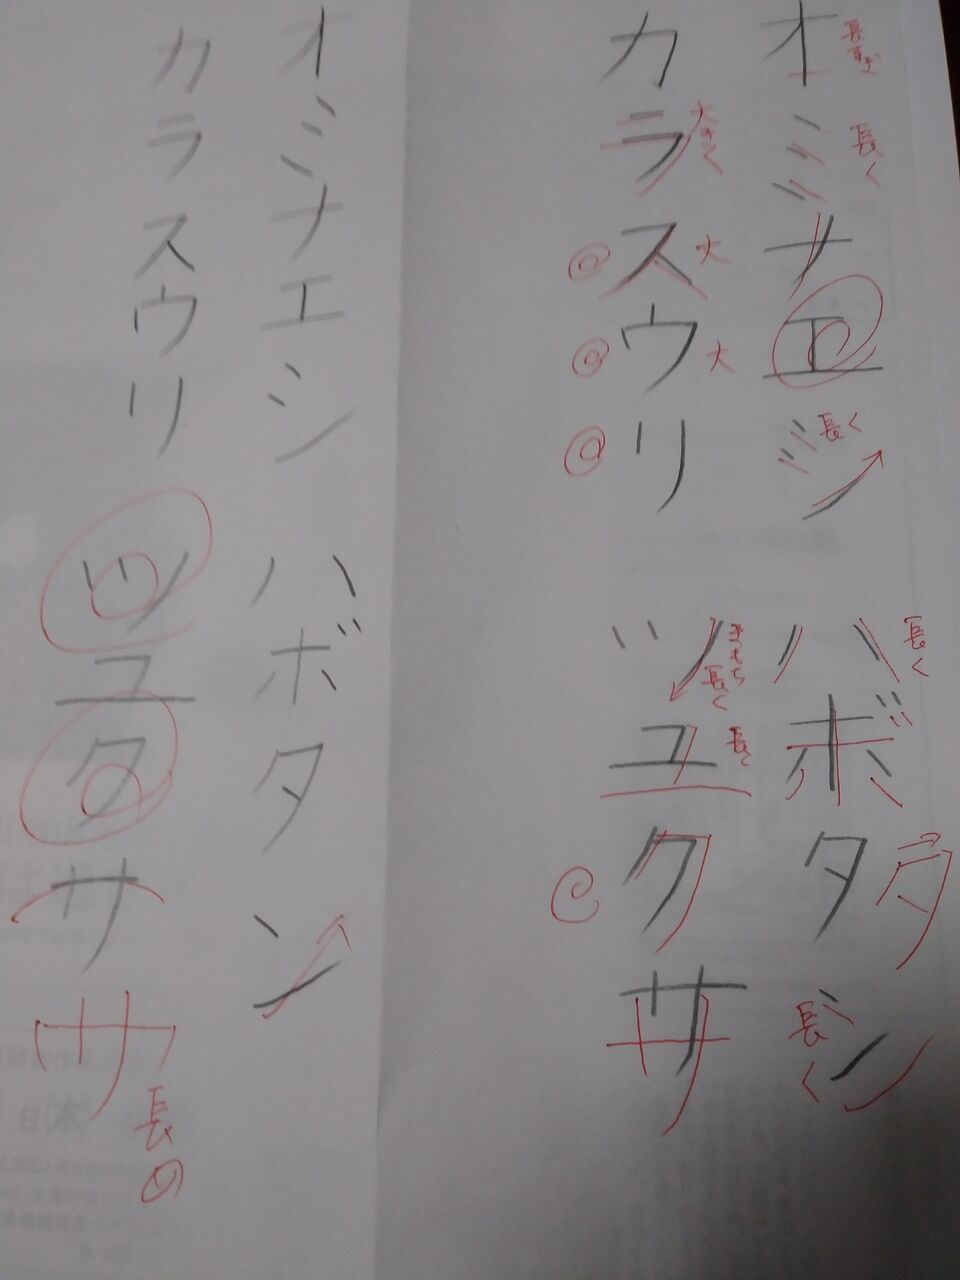 オミナエシ
長すぎ
長く
長く
カラスウリ
大きく
大
大
ハボタン
長く
タ
長く
ツユクサ
きもち長く
長く
サ
オミナエシ
カラスウリ
ハボタン
ツユクサ
サ
長め